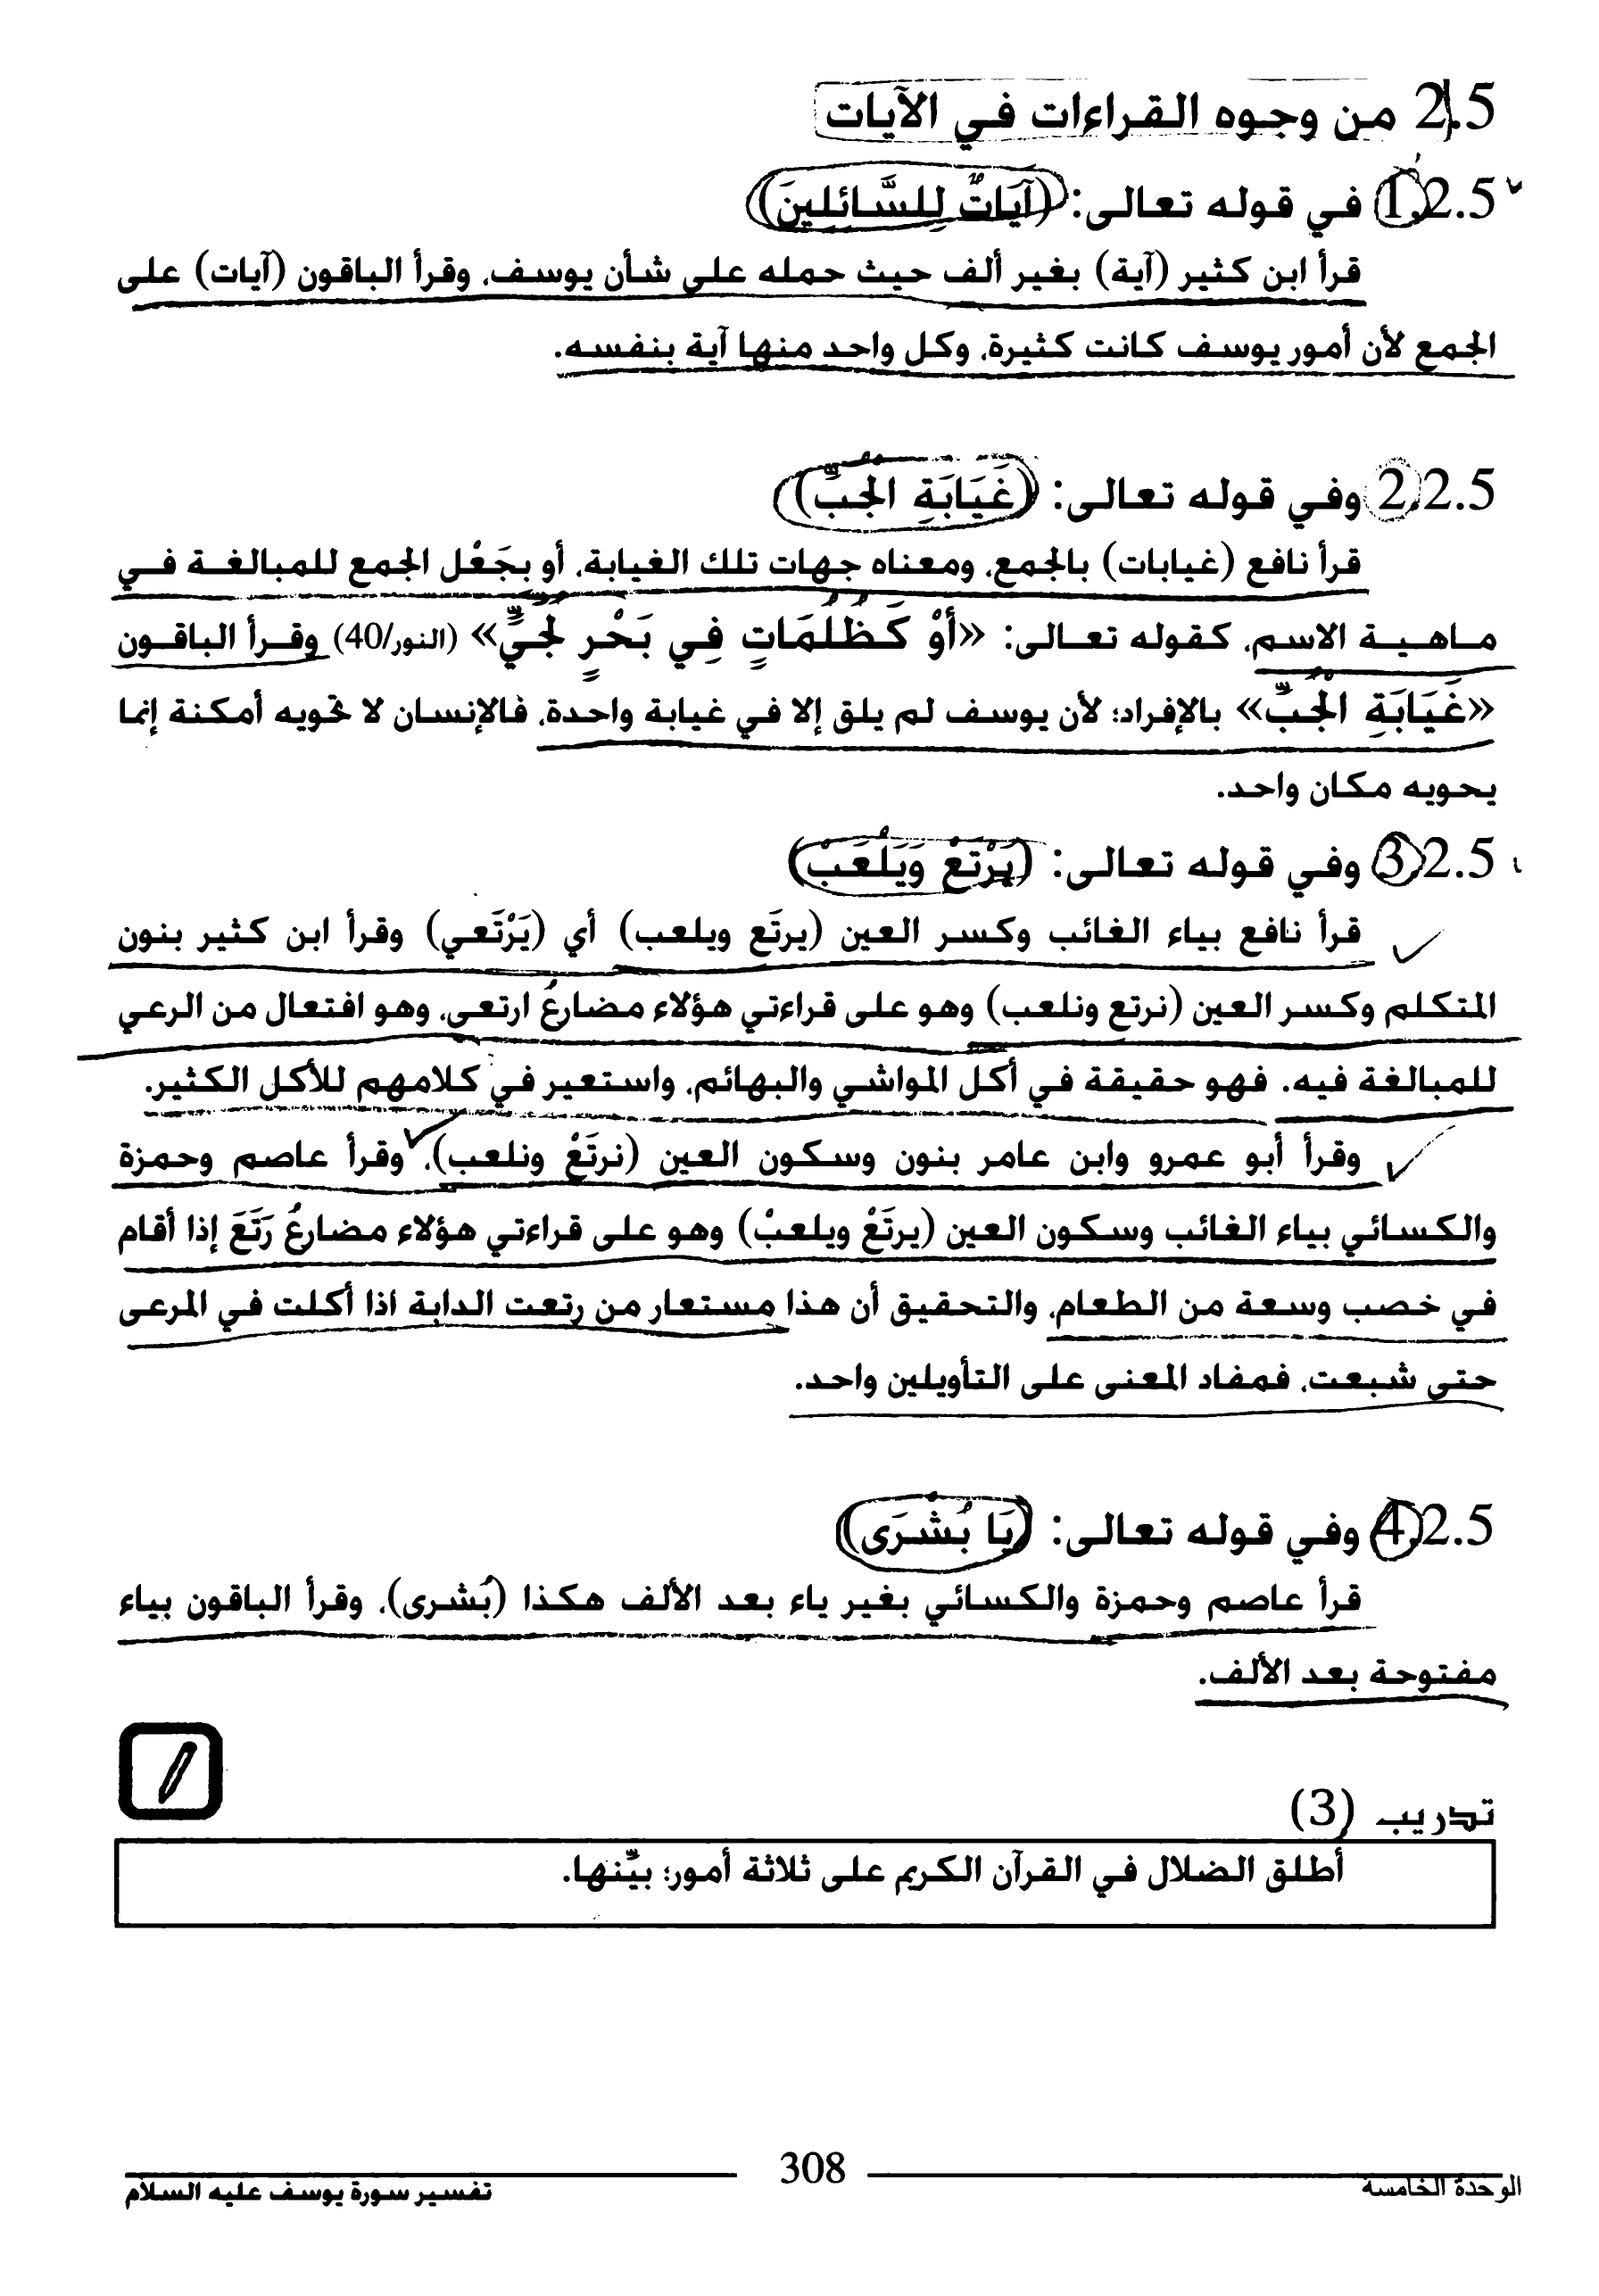 2.5 من وجوه القراءات في الآيات
1.2.5 في قوله تعالى: (آيَاتٌ لِلسَّائِلِينَ)
قرأ ابن كثير (آية) بغير ألف حيث حمله على شأن يوسف، وقرأ الباقون (آيات) على
الجمع لأن أمور يوسف كانت كثيرة، وكل واحد منها آية بنفسه.
2.2.5 وفي قوله تعالى: (غَيَابَةِ الجُبِّ)
قرأ نافع (غيابات) بالجمع، ومعناه جهات تلك الغيابة، أو بجَعْل الجمع للمبالغة في
ماهية الاسم، كقوله تعالى: «أَوْ كَظُلُمَاتٍ فِي بَحْرٍ لُجِّيٍّ» (النور/40) وقرأ الباقون
«غَيَابَةِ الْجُبِّ» بالإفراد؛ لأن يوسف لم يلق إلا في غيابة واحدة، فالإنسان لا تحويه أمكنة إنما
يحويه مكان واحد.
3.2.5 وفي قوله تعالى: (يَرْتَعْ وَيَلْعَبْ)
قرأ نافع بياء الغائب وكسر العين (يرتَع ويلعب) أي (يَرْتَعي) وقرأ ابن كثير بنون
المتكلم وكسر العين (نرتع ونلعب) وهو على قراءتي هؤلاء مضارعُ ارتعى، وهو افتعال من الرعي
للمبالغة فيه. فهو حقيقة في أكل المواشي والبهائم، واستعير في كلامهم للأكل الكثير.
وقرأ أبو عمرو وابن عامر بنون وسكون العين (نرتَعْ ونلعب)، وقرأ عاصم وحمزة
والكسائي بياء الغائب وسكون العين (يرتَعْ ويلعبْ) وهو على قراءتي هؤلاء مضارعُ رَتَعَ إذا أقام
في خصب وسعة من الطعام، والتحقيق أن هذا مستعار من رتعت الدابة اذا أكلت في المرعى
حتى شبعت، فمفاد المعنى على التأويلين واحد.
4.2.5 وفي قوله تعالى: (يَا بُشْرَى)
قرأ عاصم وحمزة والكسائي بغير ياء بعد الألف هكذا (بُشرى)، وقرأ الباقون بياء
مفتوحة بعد الألف.
تدريب (3)
أطلق الضلال في القرآن الكريم على ثلاثة أمور؛ بيّنها.
الوحدة الخامسة
308
تفسير سورة يوسف عليه السلام